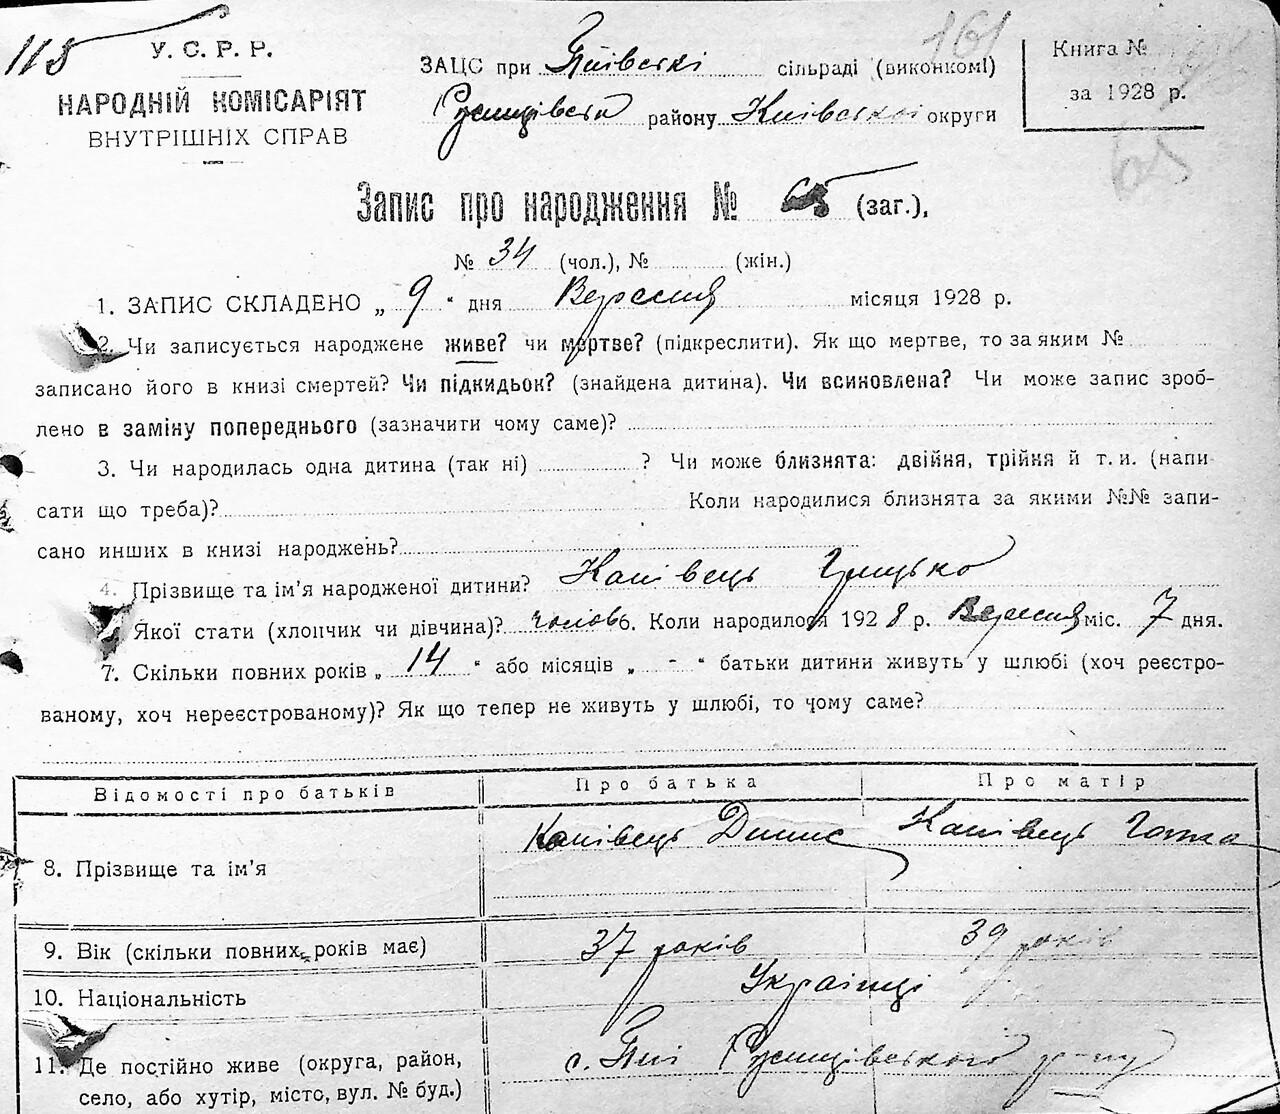 118
161
У. С. Р. Р.
НАРОДНІЙ КОМІСАРІЯТ
ВНУТРІШНІХ СПРАВ
ЗАЦС при Пиівській сільраді (виконкомі)
району Київської округи
Книга №
за 1928 р.
65
Запис про народження № 65 (заг.),
№ 34 (чол.), № (жін.)
1. ЗАПИС СКЛАДЕНО „ 9 “ дня Вересня місяця 1928 р.
2. Чи записується народжене живе? чи мертве? (підкреслити). Як що мертве, то за яким №
записано його в книзі смертей? Чи підкидьок? (знайдена дитина). Чи всиновлена? Чи може запис зроб-
лено в заміну попереднього (зазначити чому саме)?
3. Чи народилась одна дитина (так ні) ? Чи може близнята: двійня, трійня й т. и. (напи-
сати що треба)? Коли народилися близнята за якими №№ запи-
сано инших в книзі народжень?
4. Прізвище та ім’я народженої дитини? Канівець Грицько
Якої стати (хлопчик чи дівчина)? чолов 6. Коли народилося 1928 р. Вересня міс. 7 дня.
7. Скільки повних років „ 14 “ або місяців „ - “ батьки дитини живуть у шлюбі (хоч реєстро-
ваному, хоч нереєстрованому)? Як що тепер не живуть у шлюбі, то чому саме?
Відомості про батьків Про батька Про матір
8. Прізвище та ім’я Канівець Динис Канівець Гапка
9. Вік (скільки повних років має) 37 років 39 років
10. Національність Українці
11. Де постійно живе (округа, район, с. Пиї
село, або хутір, місто, вул. № буд.)